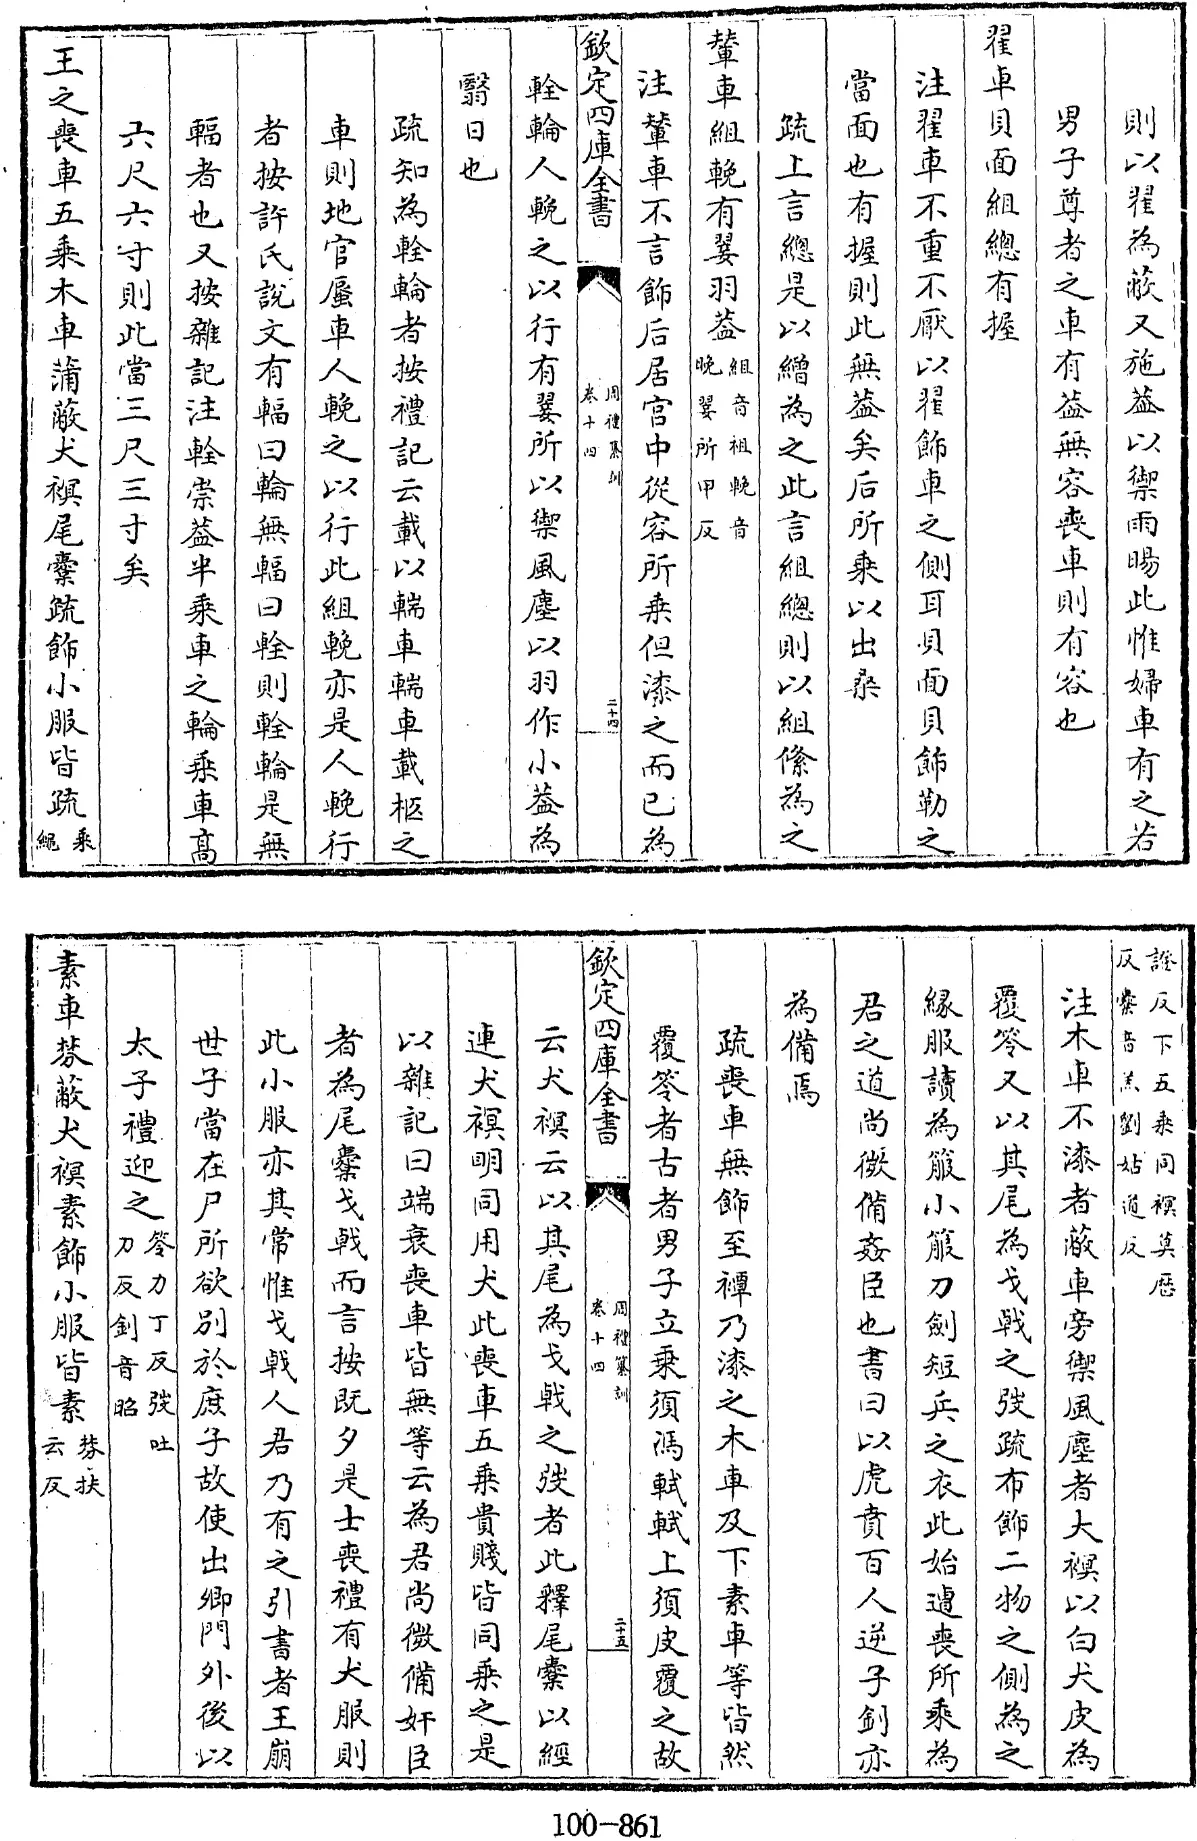 則以翟為蔽又施葢以禦雨暘此惟婦車有之若
男子尊者之車有葢無容喪車則有容也
翟車貝面組總有握
注翟車不重不厭以翟飾車之側耳貝面貝飾勒之
當面也有握則此無葢矣后所乗以出桑
疏上言總是以繒為之此言組總則以組絛為之
輦車組輓有翣羽葢組音祖輓音
晚翣所甲反
注輦車不言飾后居宫中從容所乗但漆之而已為
欽定四庫全書
周禮纂訓
卷十四
二十四
輇輪人輓之以行有翣所以禦風塵以羽作小葢為
翳日也
疏知為輇輪者按禮記云載以輲車輲車載柩之
車則地官蜃車人輓之以行此組輓亦是人輓行
者按許氏說文有輻曰輪無輻曰輇則輇輪是無
輻者也又按雜記注輇崇葢半乗車之輪乗車髙
六尺六寸則此當三尺三寸矣
王之喪車五乗木車蒲蔽犬䙏尾櫜疏飾小服皆疏乗
繩
證反下五乗同䙏莫歴
反櫜音羔劉姑道反
注木車不漆者蔽車旁禦風塵者犬䙏以白犬皮為
覆笭又以其尾為戈戟之弢疏布飾二物之側為之
緣服讀為箙小箙刀劍短兵之衣此始遭喪所乘為
君之道尚微備姦臣也書曰以虎賁百人逆子釗亦
為備焉
疏喪車無飾至禫乃漆之木車及下素車等皆然
覆笭者古者男子立乗須馮軾軾上須皮覆之故
欽定四庫全書
周禮纂訓
卷十四
二十五
云犬䙏云以其尾為戈戟之弢者此釋尾櫜以經
連犬䙏明同用犬此喪車五乗貴賤皆同乘之是
以雜記曰端衰喪車皆無等云為君尚微備奸臣
者為尾櫜戈戟而言按既夕是士喪禮有犬服則
此小服亦其常惟戈戟人君乃有之引書者王崩
世子當在尸所欲別於庶子故使出卿門外後以
太子禮迎之笭力丁反弢吐
刀反釗音昭
素車棼蔽犬䙏素飾小服皆素棼扶
云反
100-861